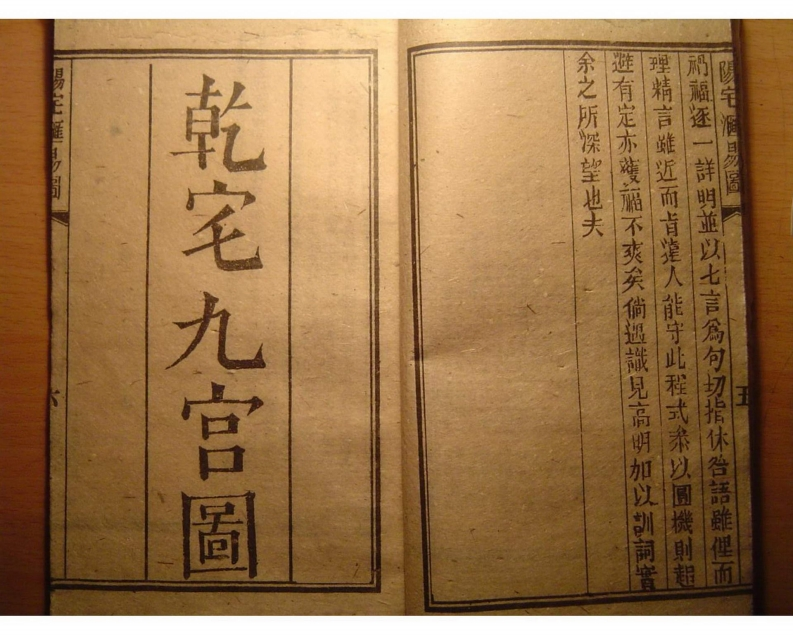 陽宅滙易圖
五
禍福逐一詳明並以七言爲句切指休咎語雖俚而
理精言雖近而肯達人能守此程式叅以圓機則趨
避有定亦獲福不爽矣倘遇識見高明加以訓詞實
余之所深望也夫
乾宅九宮圖
陽宅滙易圖
六